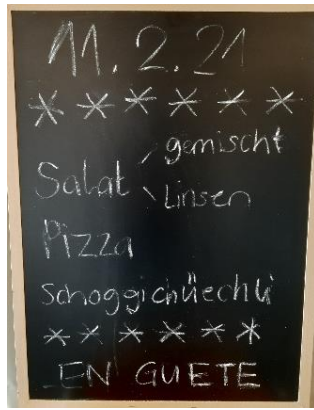 11.2.21
******
gemischt
Salat
Linsen
Pizza
Schoggichüechli
******
EN GUETE